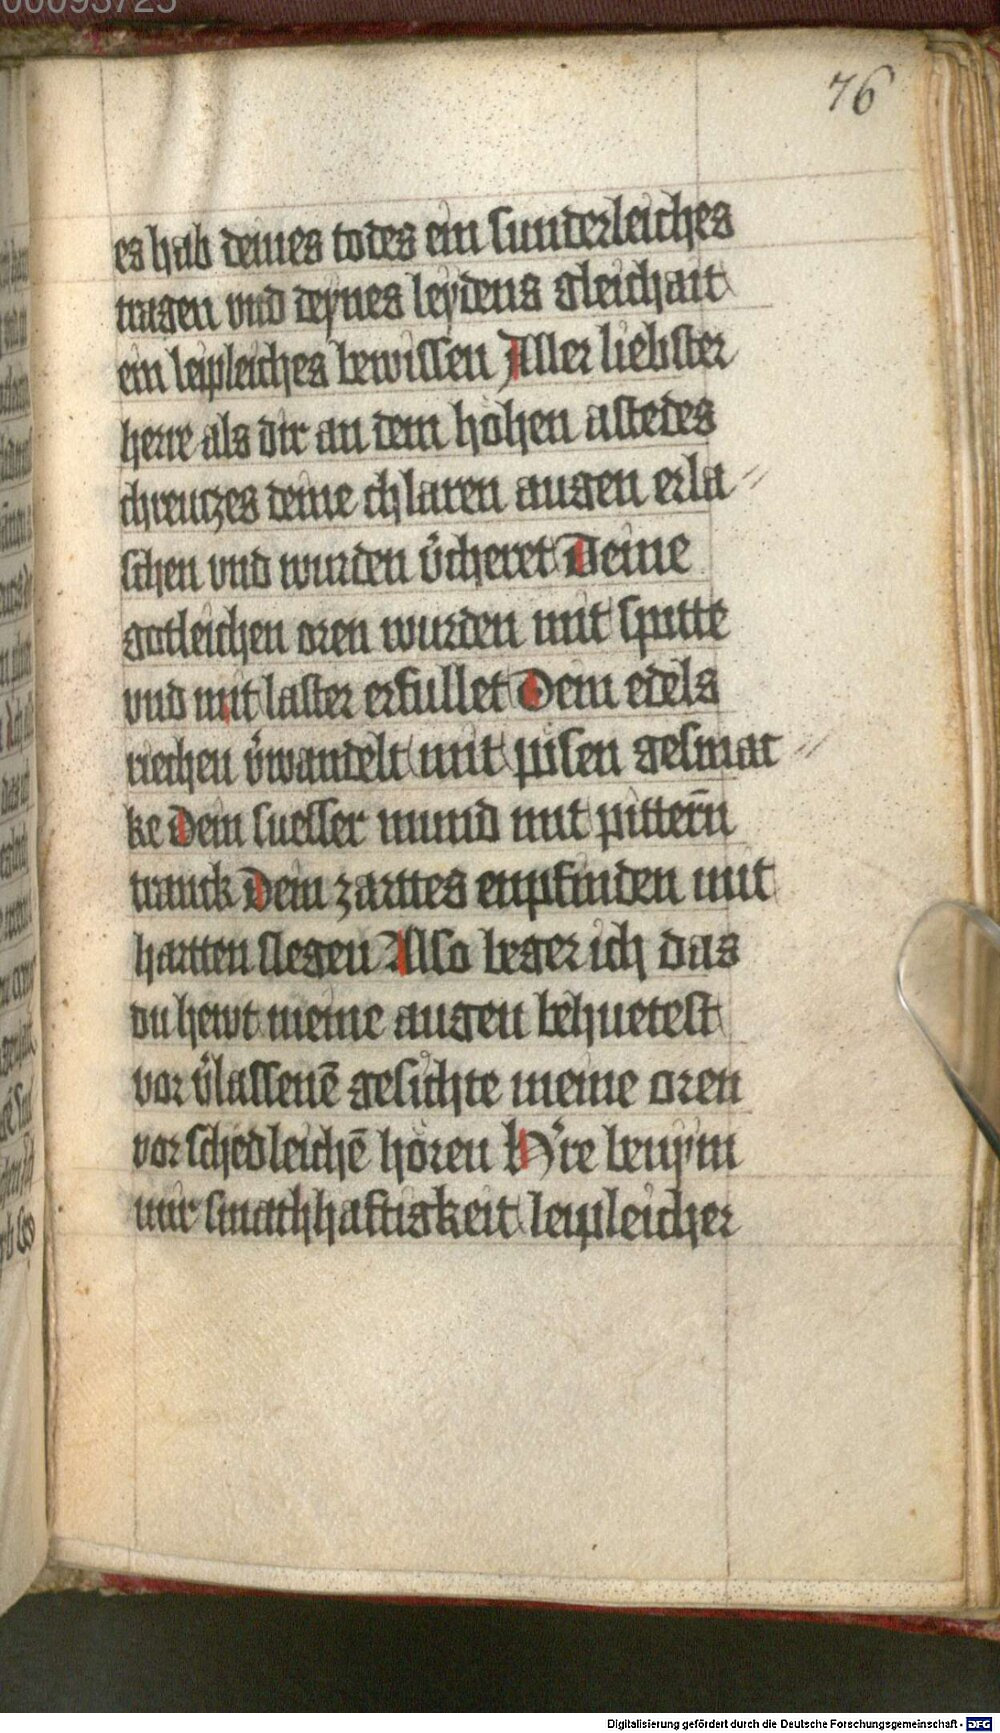 76
es hab deines todes ein sunderleiches
tragen vnd deynes leydens gleichait
ein leipleiches bewissen Aller liebster
herre als dir an dem hohen astedes
chreuczes deine chlaren augen erla //
schen vnd wurden v̉cheret Deine
gotleichen oren wurden mit spotte
vnd mit laster erfullet Dein edels
riechen v̉wandelt mit pòsen gesmac //
ke Dein suesser mund mit pittern̄
tranck Dein zarttes enpfinden mit
hartten slegen Also beger ich das
du hewt meine augen behuetest
vor v̉lassenē gesichte meine oren
vor schedleichē hören H're benym
mir smachhaftigkeit leipleicher
Digitalisierung gefördert durch die Deutsche Forschungsgemeinschaft - DFG